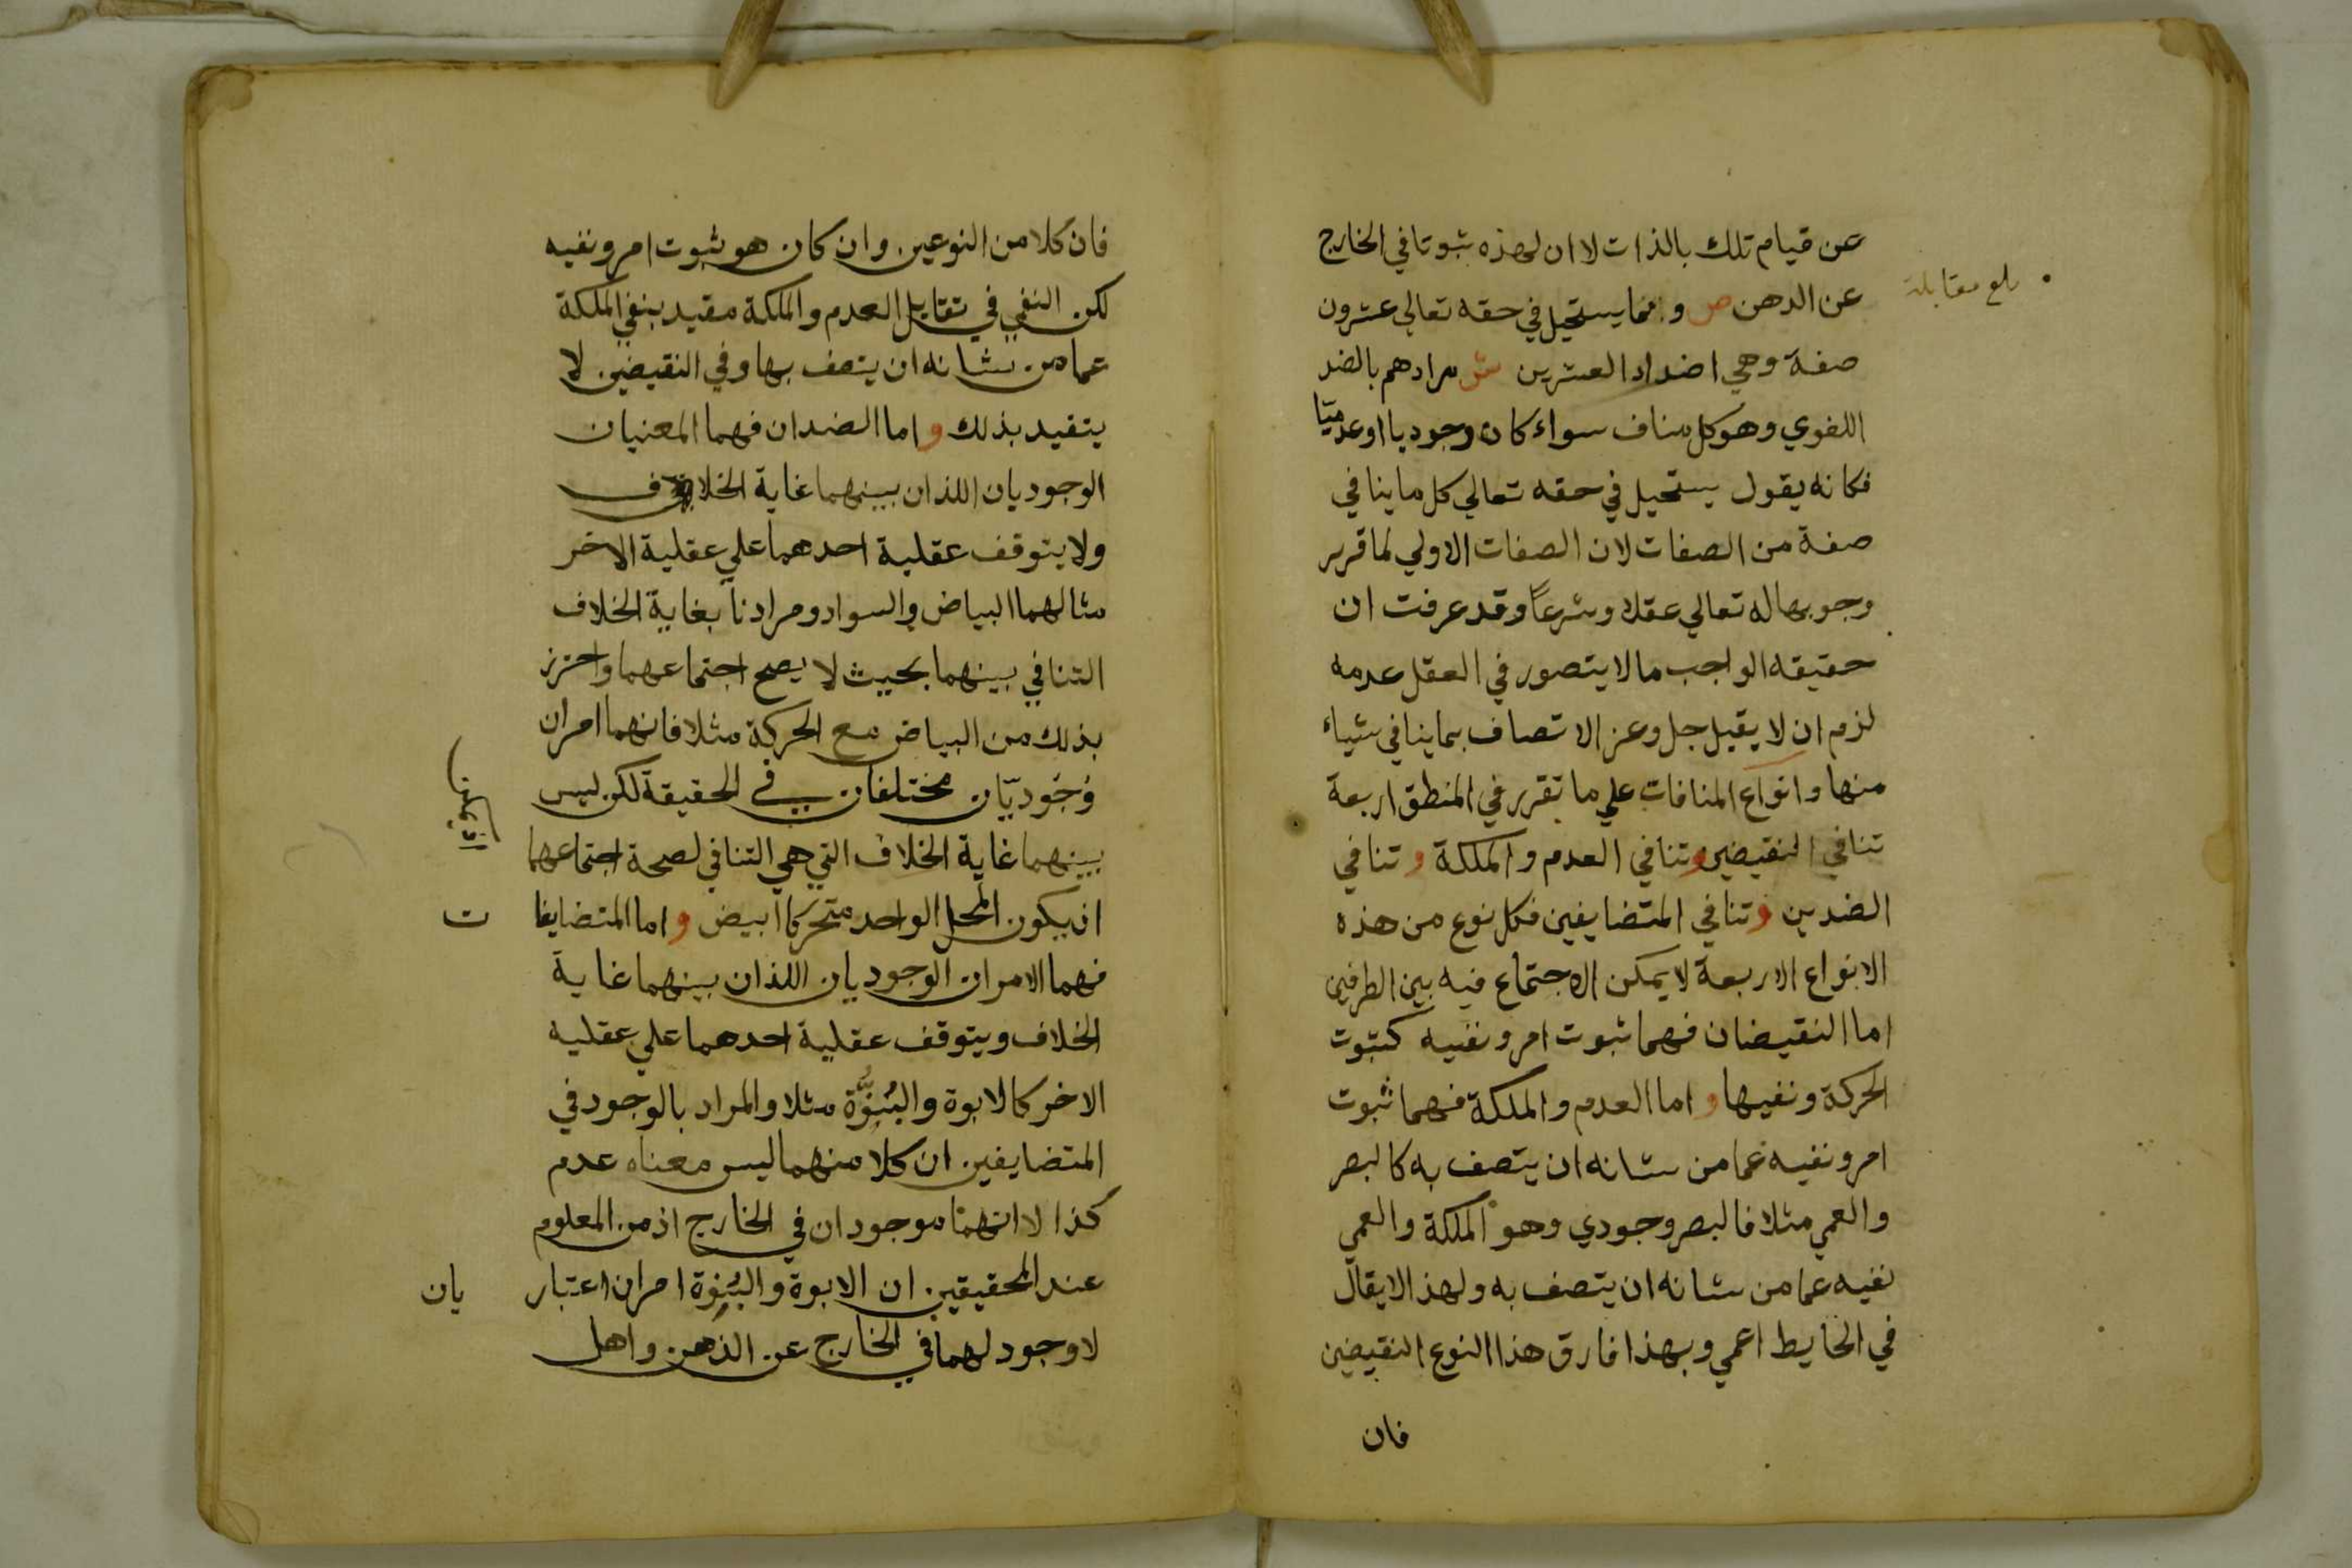 عن قيام تلك بالذات لا ان لهذه ثبوتا في الخارج
بلغ مقابلة
عن الدهن ص ومما يستحيل في حقه تعالي عشرون
صفة وهي اضداد العشرين ش مرادهم بالضد
اللغوي وهو كل مناف سواء كان وجوديا او عدميّا
فكانه يقول يستحيل في حقه تعالي كل ما ينافي
صفة من الصفات لان الصفات الاولي لما قرر
وجوبها له تعالي عقلا وشرعاً وقد عرفت ان
حقيقه الواجب ما لا يتصور في العقل عدمه
لزم ان لا يقبل جل وعز الاتصاف بما ينافي شياء
منها وانواع المنافات علي ما تقرر في المنطق اربعة
تنافي النقيضين وتنافي العدم والملكة وتنافي
الضدين وتنافي المتضايفين فكل نوع من هذه
الانواع الاربعة لا يمكن الاجتماع فيه بين الطرفين
اما النقيضان فهما ثبوت امر ونفيه كثبوت
الحركة ونفيها واما العدم والملكة فهما ثبوت
امر ونفيه عما من شانه ان يتصف به كالبصر
والعمي مثلا فالبصر وجودي وهو الملكة والعمي
نفيه عما من شانه ان يتصف به ولهذا لا يقال
في الحايط اعمي وبهذا فارق هذا النوع النقيضين
فان
فان كلا من النوعين وان كان هو ثبوت امر ونفيه
لكن النفي في تقابل العدم والملكة مقيد بنفي الملكة
عما من شانه ان يتصف بها وفي النقيضين لا
يتقيد بذلك واما الضدان فهما المعنيان
الوجوديان اللذان بينهما غاية الخلاف
ولا يتوقف عقلية احدهما علي عقلية الاخر
مثالهما البياض والسواد ومرادنا بغاية الخلاف
التنافي بينهما بحيث لا يصح اجتماعهما واحترز
بذلك من البياض مع الحركة مثلا فانهما امران
وُجُوديّان مختلفان في الحقيقة لكن ليس
بينهما غاية الخلاف التي هي التنافي لصحة اجتماعهما
ان يكون المحل الواحد متحركا ابيض واما المتضايفا
ت
فهما الامران الوجوديان اللذان بينهما غاية
الخلاف ويتوقف عقلية احدهما علي عقليه
الاخر كالابوة والبُنوَّة مثلا والمراد بالوجود في
المتضايفين ان كلا منهما ليس معناه عدم
كذا لا انهما موجودان في الخارج اذ من المعلوم
عند المحقيقين ان الابوة والبُنوة امران اعتبار
يان
لا وجود لهما في الخارج عن الذهن واهل